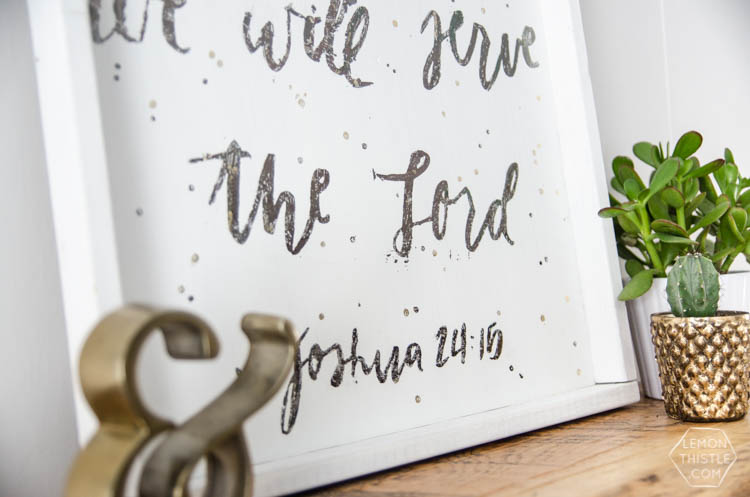 we will serve
the Lord
Joshua 24:15
&
LEMON
THISTLE
.COM